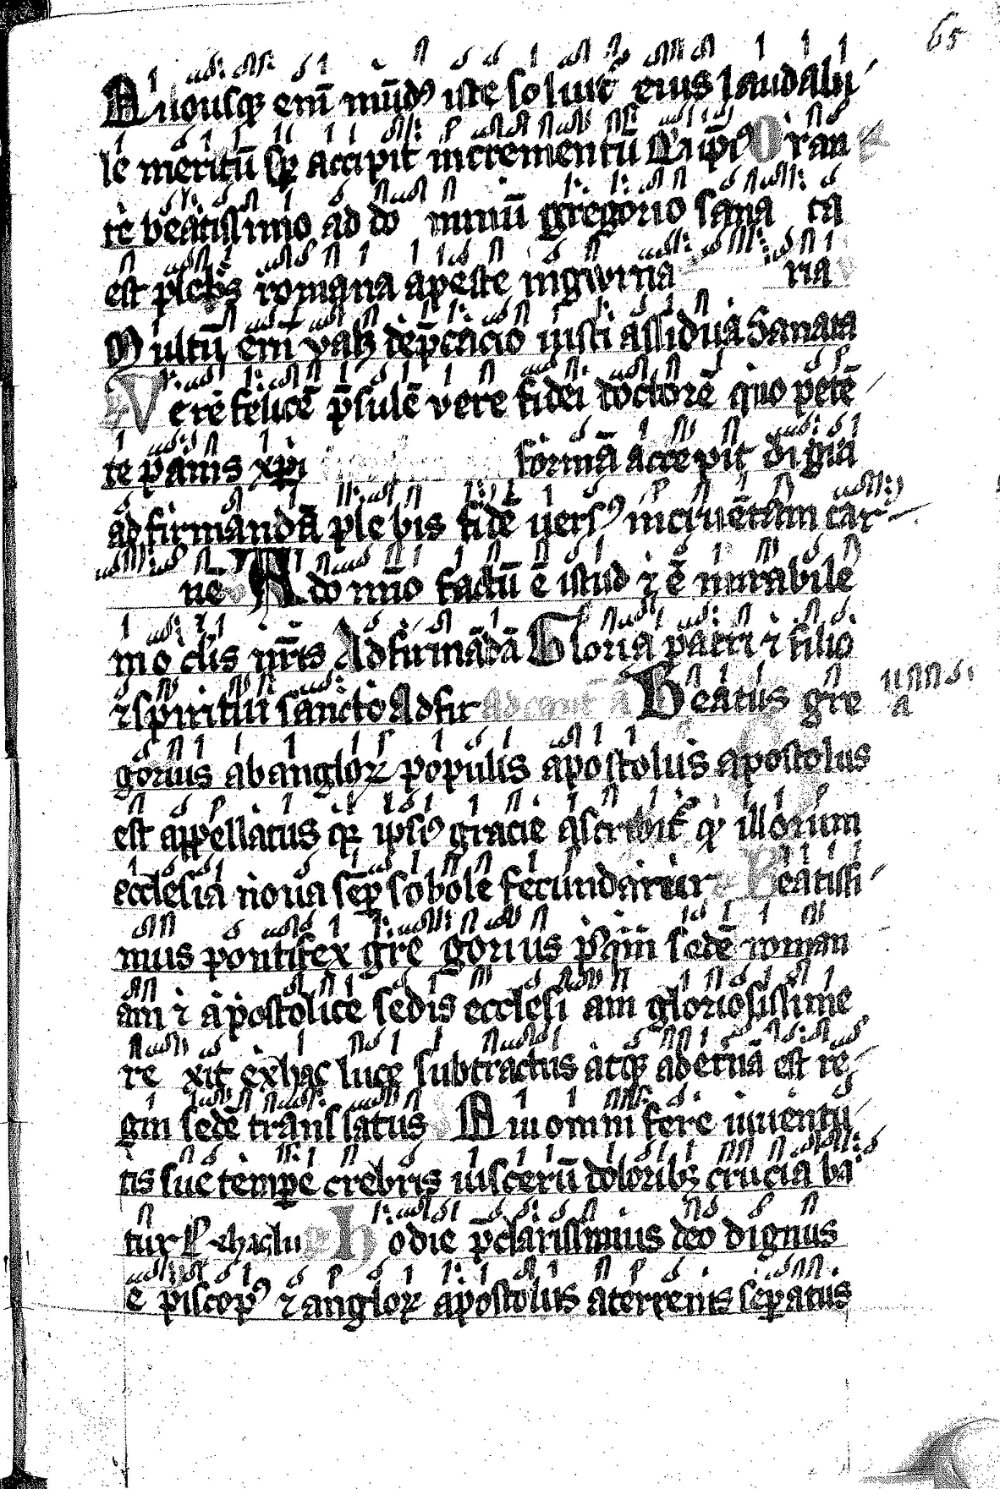 65
Quousq; eni mūdꝰ iste soluit᷑ eius laudabi
le meritū sp̄ accipit incrementū Qui ip̄iꝰ Oran
te beatissimo ad do minum gregorio sana ta
est plebs romana a peste ingwina ria
Multū eni valꝫ dep̄cacio iusti assidua Sanata
Vere felicē p̄sulē vere fidei doctorē quo petē
te panis xp̄i formā accepit digiti
ad firmandā ple bis fidē uersꝰ incruētam car
nē A do mino factū ē istud ⁊ ē mirabile
in o clis nr̄is Ad firmādā Gloria patri ⁊ filio
⁊ spiritui sancto Ad fir Beatus gre
gorius ab angloꝝ populis apostolus apostolus
est appellatus qꝛ ipsiꝰ gracie ascribit᷑ qꝫ illorum
ecclesia noua semp̄ sobole fecundatur Beatissi
mus pontifex gre gorius sedē roman
am ⁊ apostolice sedis ecclesi am gloriosissime
re xit ex hac luce subtractus atqꝫ ad etnā est re
gni sedē trans latus Qui omni fere iuuentu
tis sue tempe crebris uiscerū doloribꝫ crucia ba
tur hodie p̄clarissimus deo dignus
e piscopꝰ ⁊ angloꝝ apostolus a terrenis sepatus